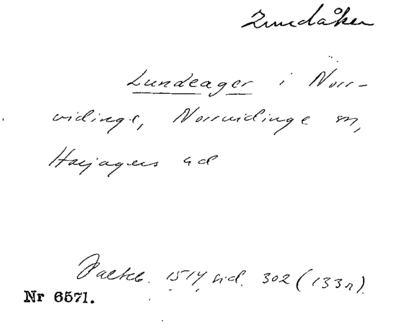 Lundåker
Lundeager i Norr-
vidinge, Norrvidinge sn,
Harjagers hd
Palteb. 1514 sid. 302 (133r).
Nr 6571.